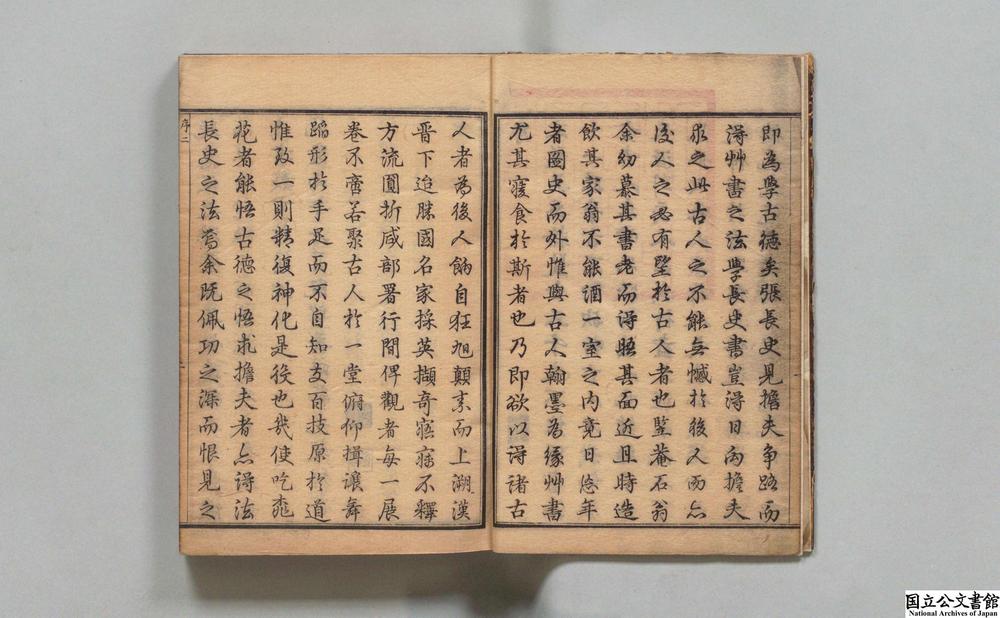 即為學古德矣張長史見擔夫争路而
得艸書之法學長史書豈得日向擔夫
求之此古人之不能無憾於後人而亦
後人之必有望於古人者也豎菴石翁
余幼慕其書老而得晤其面近且時造
飲其家翁不能酒一室之内竟日悠年
者圖史而外惟與古人翰墨為緣艸書
尤其寢食於斯者也乃即欲以得諸古
人者為後人餉自狂旭顛素而上溯漢
晋下迨勝國名家採英擷奇寤寐不釋
方流圓折咸部署行間俾觀者每一展
卷不啻若聚古人於一堂俯仰揖讓舞
蹈形於手足而不自知夫百技原於道
惟致一則精復神化是役也哉使吃桃
花者能悟古德之悟求擔夫者亦得法
長史之法焉余既佩功之深而恨見之
序二
国立公文書館
National Archives of Japan